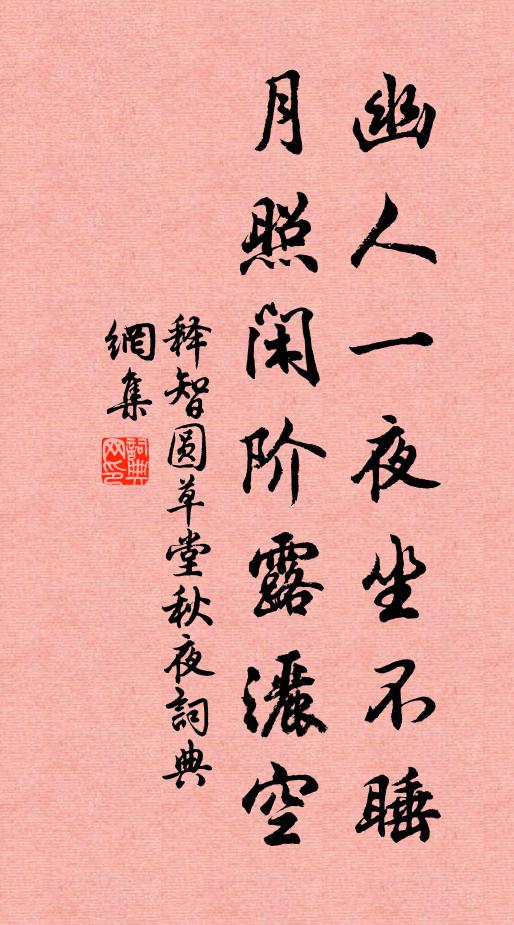 幽人一夜坐不睡
月照闲阶露灑空
释智圆草堂秋夜詞典
網集
詞典
网印